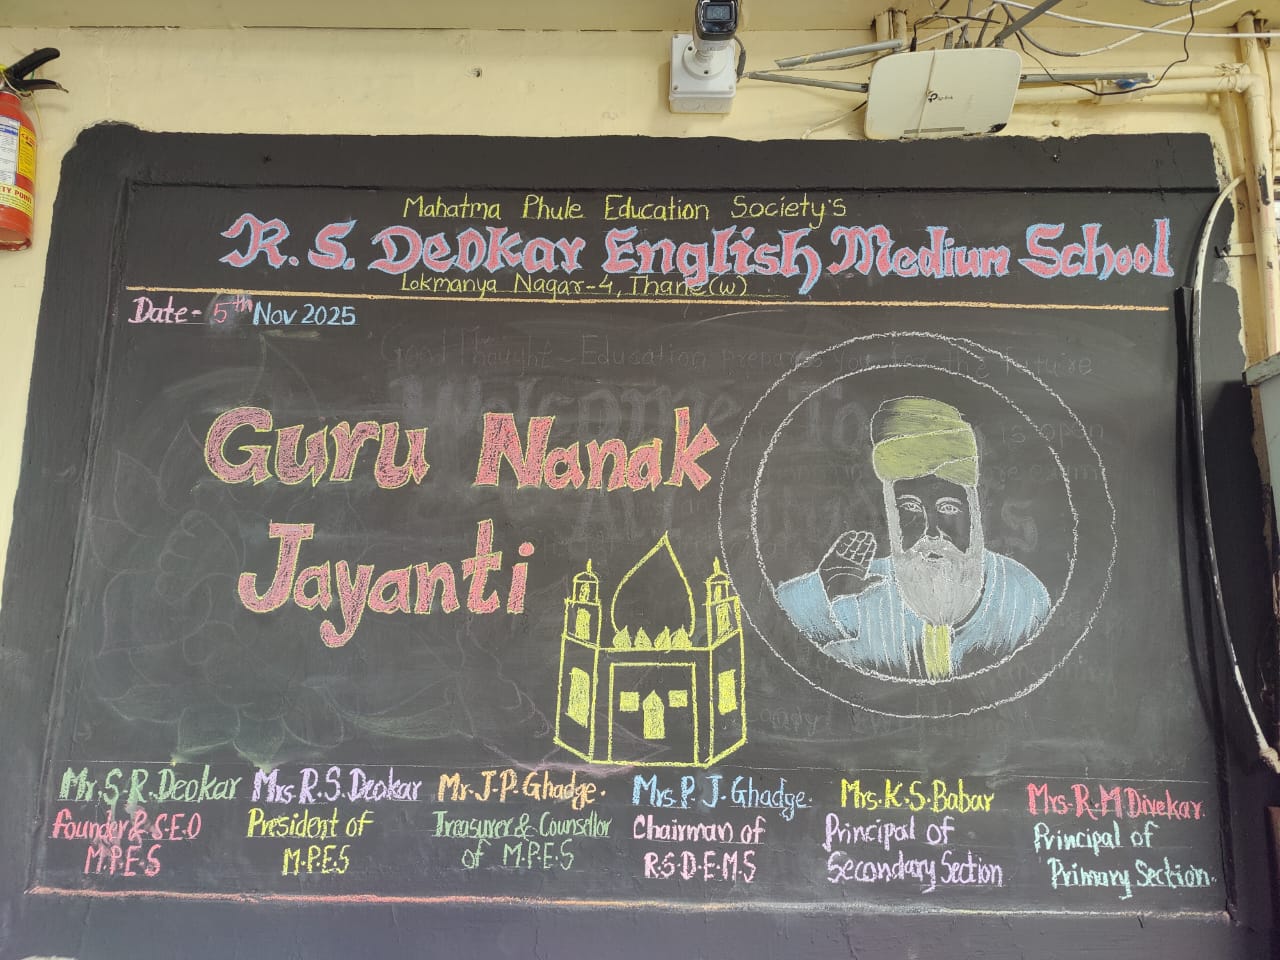 Mahatma Phule Education Society's
R. S. Deokar English Medium School
Lokmanya Nagar-4, Thane (w)
Date- 5th Nov 2025
Good Thought - Education prepares You for the future
Welcome To
All
Guru Nanak
Jayanti
Mr. S. R. Deokar
Founder & S.E.O
M.P.E.S
Mrs R. S. Deokar
President of
M.P.E.S
Mr. J. P. Ghadge.
Treasurer & Counsellor
of M.P.E.S
Mrs P. J. Ghadge.
Chairman of
R.S.D.E.M.S
Mrs. K. S. Babar
Principal of
Secondary Section
Mrs. R. M Divekar.
Principal of
Primary Section.
tp-link